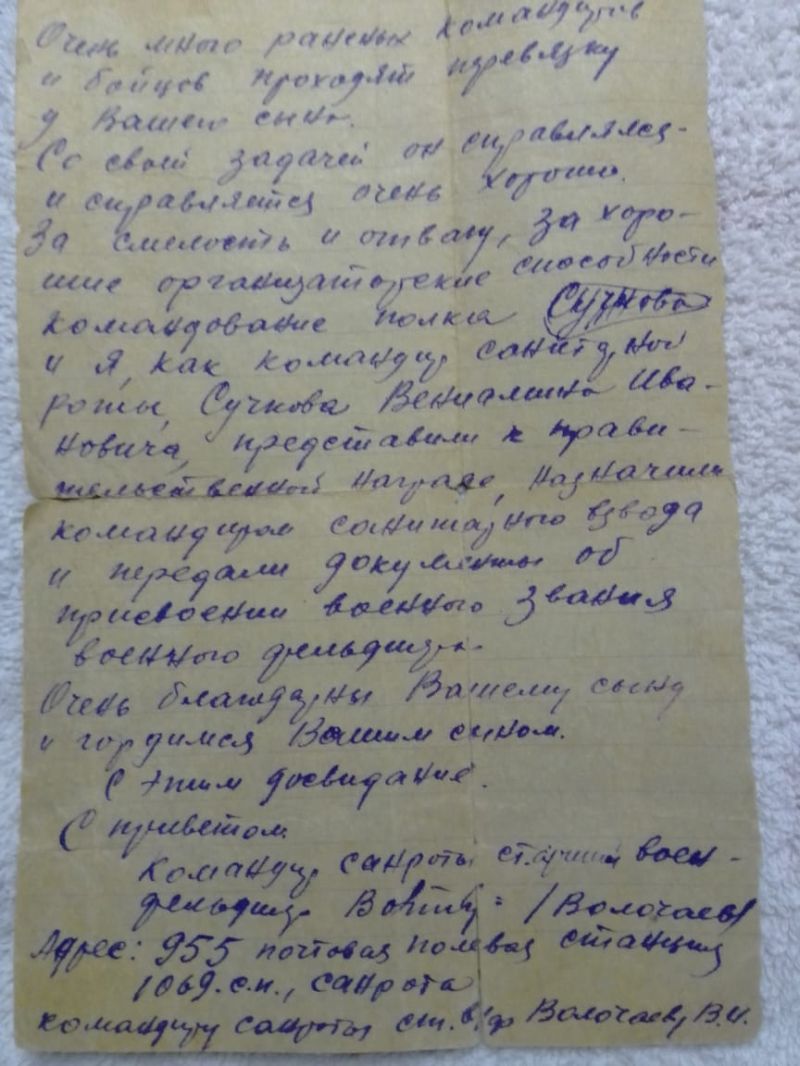 Очень много раненых командиров
и бойцов проходят перевязку
у Вашего сына.
Со своей задачей он справлялся
и справляется очень хорошо.
За смелость и отвагу, за хоро-
шие организаторские способности
командование полка Сучкова
и я, как командир санитарной
роты, Сучкова Вениамина Ива-
новича, представили к прави-
тельственной награде, назначили
командиром санитарного взвода
и передали документы об
присвоении военного звания
военного фельдшера.
Очень благодарны Вашему сыну
и гордимся Вашим сыном.
С этим досвидание.
С приветом
Командир санроты старший воен-
фельдшер /Волочаев/
Адрес: 955 почтовая полевая станция
1069.с.п., санрота
командиру санроты ст. в/ф Волочаеву В.И.